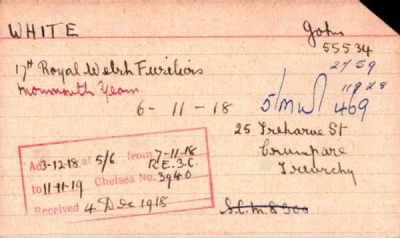 WHITE John
55534
17th Royal Welsh Fusiliers 2759
Monmouth Yeom 11928
6-11-18 5/MW/469
25 Treharne St
Cwmparc
Treorchy
Ad 3-12-18 at 5/6 from 7-11-18
R.E.3.C.
to 11-11-19 Chelsea No. 3940
Received 4 Dec 1918
S.C.M. 8500